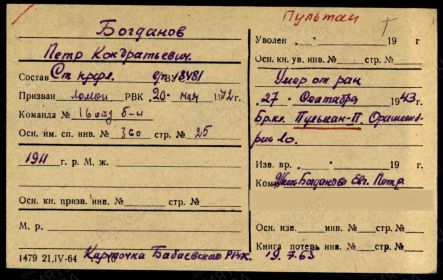 Богданов
Петр Кондратьевич
Состав Ст. крас. ВУ
Призван РВК „20" мая 1942г.
Команда № 16 озу б-н
Осн. им. сп. инв. № 360 стр. № 25
1911 г. р. М. ж.
Осн. кн. призв. инв. № стр. №
М. р.
1479 21,IV-64
Карточка Бабаевского РВК. 19.7.63
Пультан
Уволен „ " 19 г
Осн. кн. ув. инв. № стр. №
Умер от ран
„27" Сентября 1943г.
Изв. вр. 19 г
Кому Жена Богданова Евг. Петр.
Осн. изв. инв. № стр. №
Книга потерь инв. № стр. №